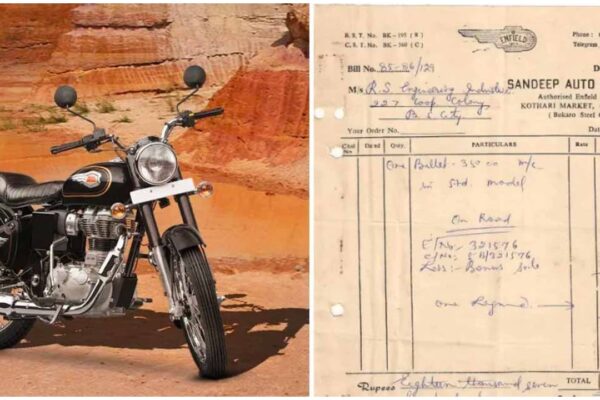 B. S. T. No. BK - 195 ( R )
C. S. T. No. BK - 160 ( C )
ENFIELD
Phone :
Telegram
Bill No. 85-86/129
D
SANDEEP AUTO
M/s R.S. Engineering
Coop Colony
B. S. City
Authorised Enfield
KOTHARI MARKET,
( Bokaro Steel C
Your Order No.
D
Dated Qnty. PARTICULARS Rate
One Bullet - 350 cc m/c
in Std. model
On Road
E/No:- 321576
C/No:-
Less:- Bonus
one
Rupees Eighteen thousand seven
TOTAL